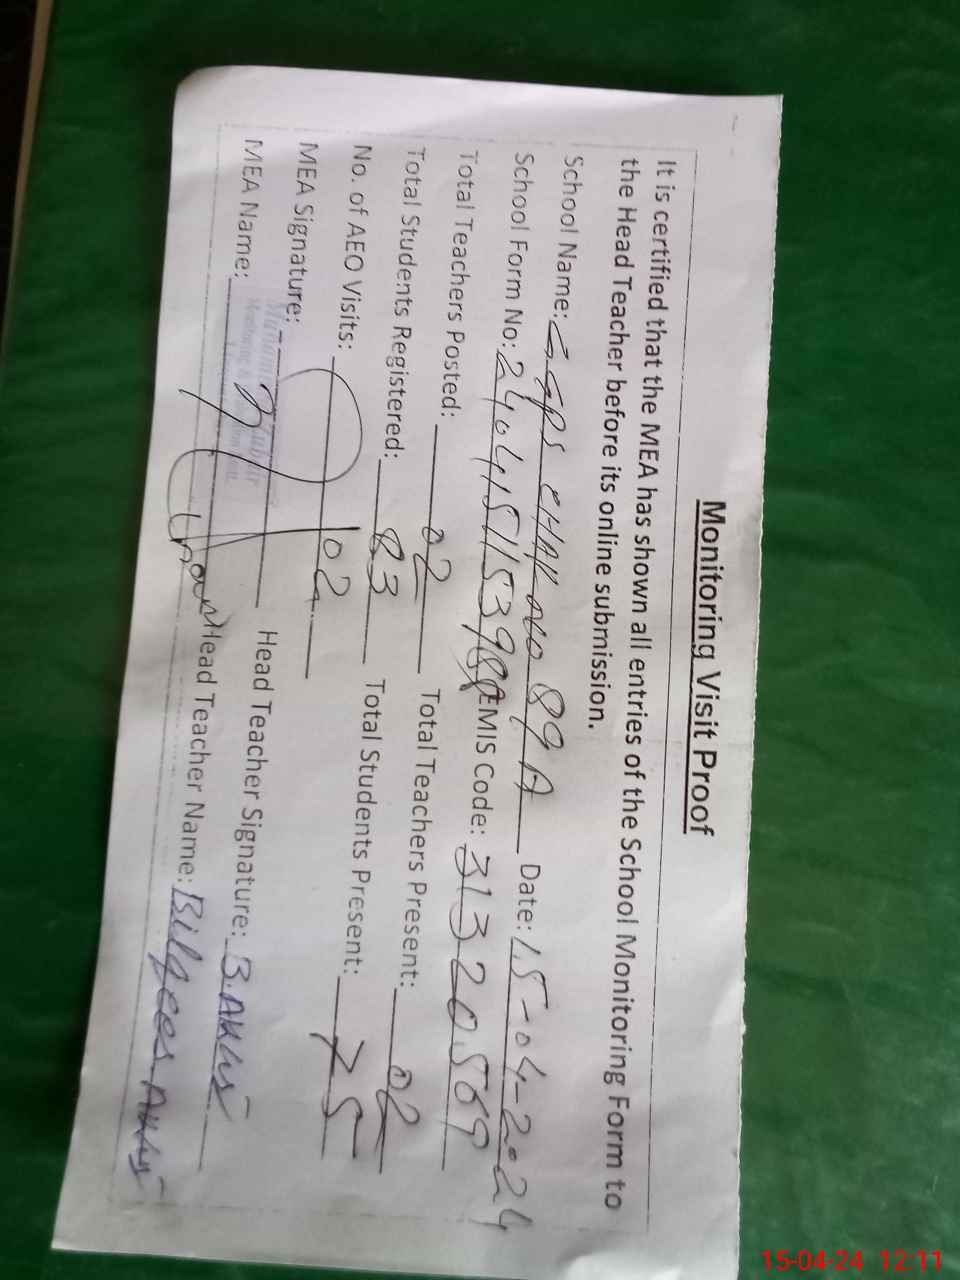 Monitoring Visit Proof
It is certified that the MEA has shown all entries of the School Monitoring Form to
the Head Teacher before its online submission.
School Name: GGPS CHAK NO 89 A Date: 15-04-2024
School Form No: EMIS Code: 31320569
Total Teachers Posted: 02 Total Teachers Present: 02
Total Students Registered: 83 Total Students Present: 75
No. of AEO Visits: 02
MEA Signature: Head Teacher Signature:
MEA Name: Head Teacher Name: Bilqees
15-04-24 12:11